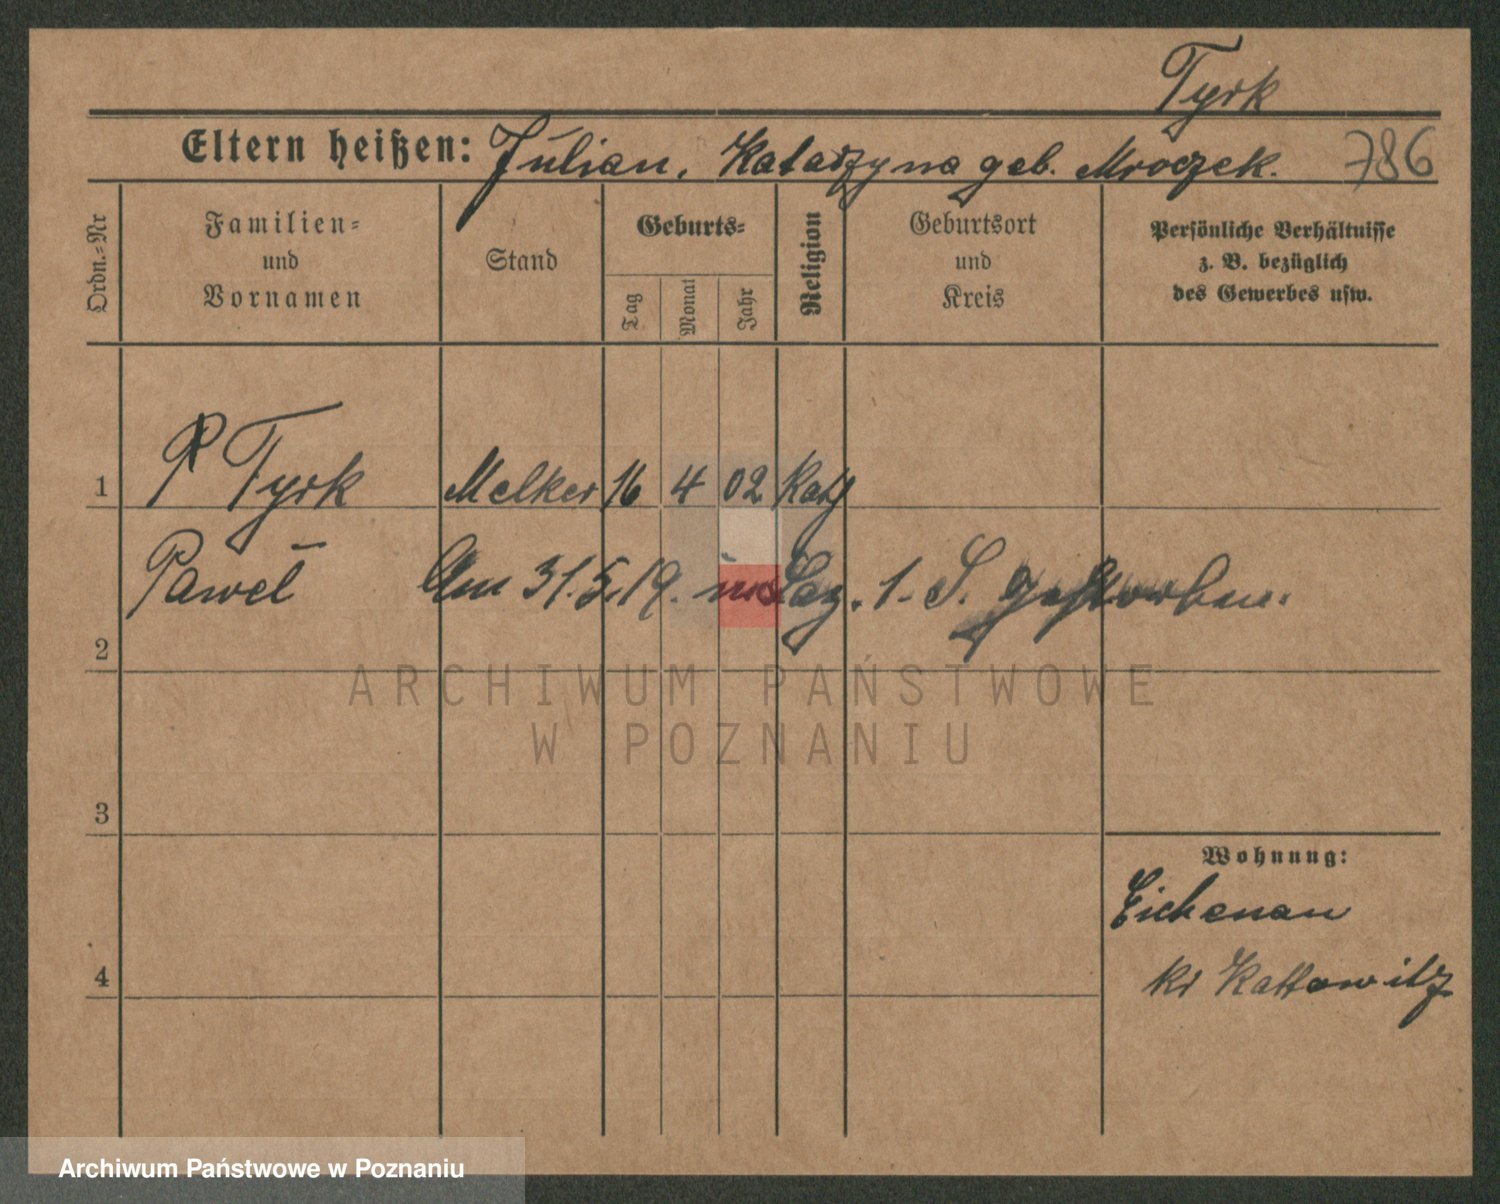 Tyrk
Eltern heißen: Julian, Katarzyna geb. Mroczek. 786
Ordn.=Nr
Familien=
und
Vornamen
Stand
Geburts=
Tag
Monat
Jahr
Religion
Geburtsort
und
Kreis
Persönliche Verhältnisse
z. B. bezüglich
des Gewerbes usw.
1 Tyrk Melker 16 4 02 Kath
Paweł Am 31.5.19. ins Laz. 1. S. gestorben.
2
ARCHIWUM PAŃSTWOWE
W POZNANIU
3
Wohnung:
Eichenau
4 Kr Kattowitz
Archiwum Państwowe w Poznaniu